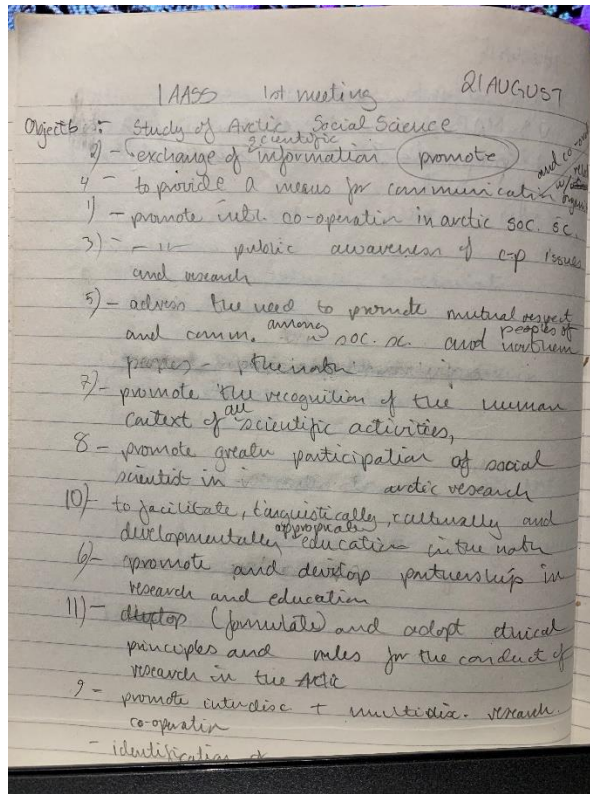 IAASS 1st meeting 21 AUGUST
Objects :- Study of Arctic Social Science
2) - exchange of scientific information promote
4 - to provide a means for communication and co-
1) - promote intl. co-operation in arctic soc. sc.
3) - - " - public awareness of c-p issues
and research
5) - adress the need to promote mutual respect
and comm. among soc. sc. and peoples of northern
peoples - the north
7) - promote the recognition of the human
context of all scientific activities,
8 - promote greater participation of social
scientist in arctic research
10) - to facilitate, linguistically, culturally and
developmentally appropriate education in the north
6) - promote and develop partnership in
research and education
11) - develop (formulate) and adopt ethical
principles and rules for the conduct of
research in the Arctic
9 - promote interdisc + multidisc. research.
co-operation
- identification of